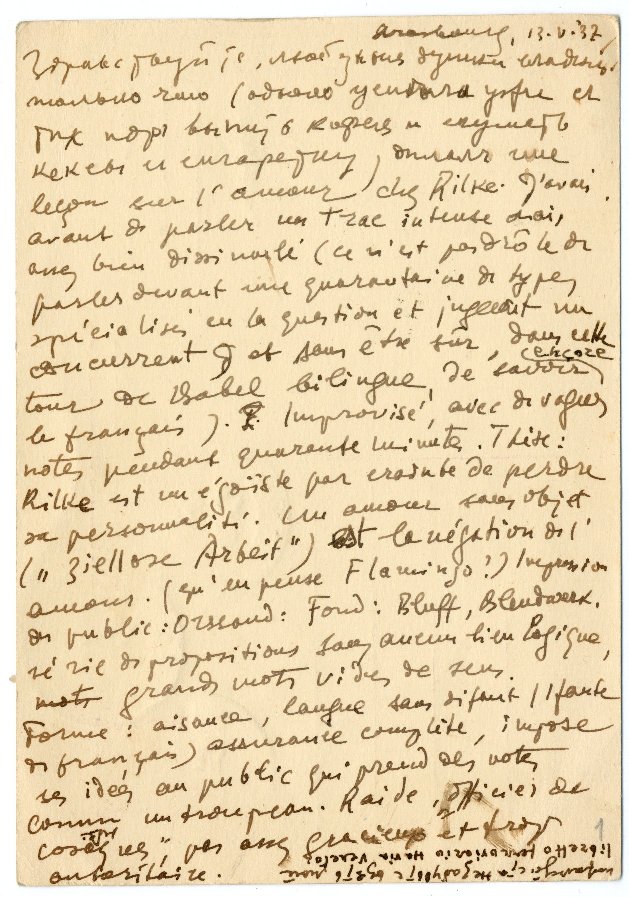 Strasbourg, 13.V.37
Здравствуйте, любушка душка
только что (одело
тих пора выпить кофею и скушать
кекса и сигаретку) une
leçon sur l'amour chez Rilke. J'avais
avant de parler un trac intense mais
assez bien dissimulé (ce n'est pas drôle de
parler devant une quarantaine de types
spécialisés en la question et jugeant un
concurrent) et sans être sûr, dans cette
tour de Babel bilingue, de savoir encore
le français). Improvisé, avec de vagues
notes pendant quarante minutes. Thèse:
Rilke est un égoïste par crainte de perdre
sa personnalité. Un amour sans objet
("Ziellose Arbeit") est la négation de l'
amour. (qu'en pense Flamingo?) Impression
du public: Fond: Bluff, Blendwerk.
série de propositions sans aucun lien logique,
grands mots vides de sens.
Forme: aisance, langue sans défaut (1 faute
de français) assurance complète, impose
ses idées au public qui prend des notes
comme un troupeau. Raide, "officier de
cosaques", pas assez gracieux et trop
autoritaire.
libretto ferroviario
1